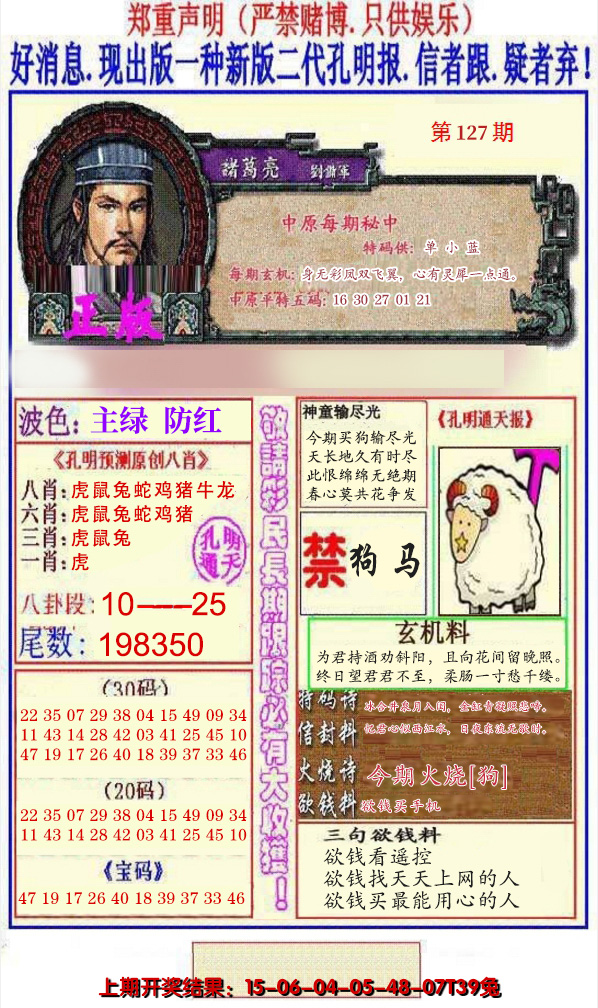 郑重声明（严禁赌博.只供娱乐）
好消息.现出版一种新版二代孔明报.信者跟.疑者弃!
第127期
諸葛亮 劉備軍
中原每期秘中
特码供: 单小蓝
每期玄机: 身无彩凤双飞翼，心有灵犀一点通。
中原平特五码: 16 30 27 01 21
正版
波色: 主绿 防红
《孔明预测原创八肖》
八肖: 虎鼠兔蛇鸡猪牛龙
六肖: 虎鼠兔蛇鸡猪
三肖: 虎鼠兔
一肖: 虎
孔明
通天
八卦段: 10———25
尾数: 198350
(30码)
22 35 07 29 38 04 15 49 09 34
11 43 14 28 42 03 41 25 45 10
47 19 17 26 40 18 39 37 33 46
(20码)
22 35 07 29 38 04 15 49 09 34
11 43 14 28 42 03 41 25 45 10
《宝码》
47 19 17 26 40 18 39 37 33 46
敬請彩民長期跟踪必有大收獲！
神童输尽光
今期买狗输尽光
天长地久有时尽
此恨绵绵无绝期
春心莫共花争发
《孔明通天报》
禁 狗 马
玄机料
为君持酒劝斜阳，且向花间留晚照。
终日望君君不至，柔肠一寸愁千缕。
特码诗 冰合井泉月入闺，金缸青凝照悲啼。
信封料 忆君心似西江水，日夜东流无歇时。
火烧诗 今期火烧[狗]
欲钱料 欲钱买手机
三句欲钱料
欲钱看遥控
欲钱找天天上网的人
欲钱买最能用心的人
上期开奖结果：15-06-04-05-48-07T39兔